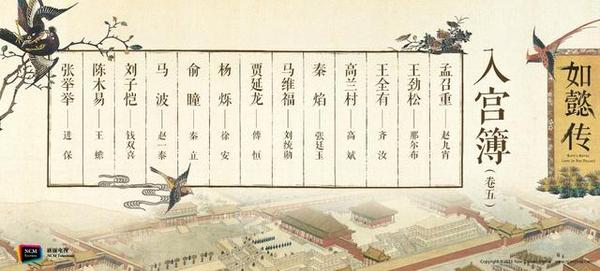 如懿传
RUYI'S ROYAL LOVE IN THE PALACE
入宫簿(卷五)
孟召重——赵九宵
王劲松——那尔布
王全有——齐汝
高兰村——高斌
秦焰——张廷玉
马维福——刘统勋
贾延龙——傅恒
杨烁——徐安
俞瞳——秦立
马波——赵一泰
刘子恺——钱双喜
陈木易——王蟾
张举举——进保
NCM
新丽电视
NCM Television